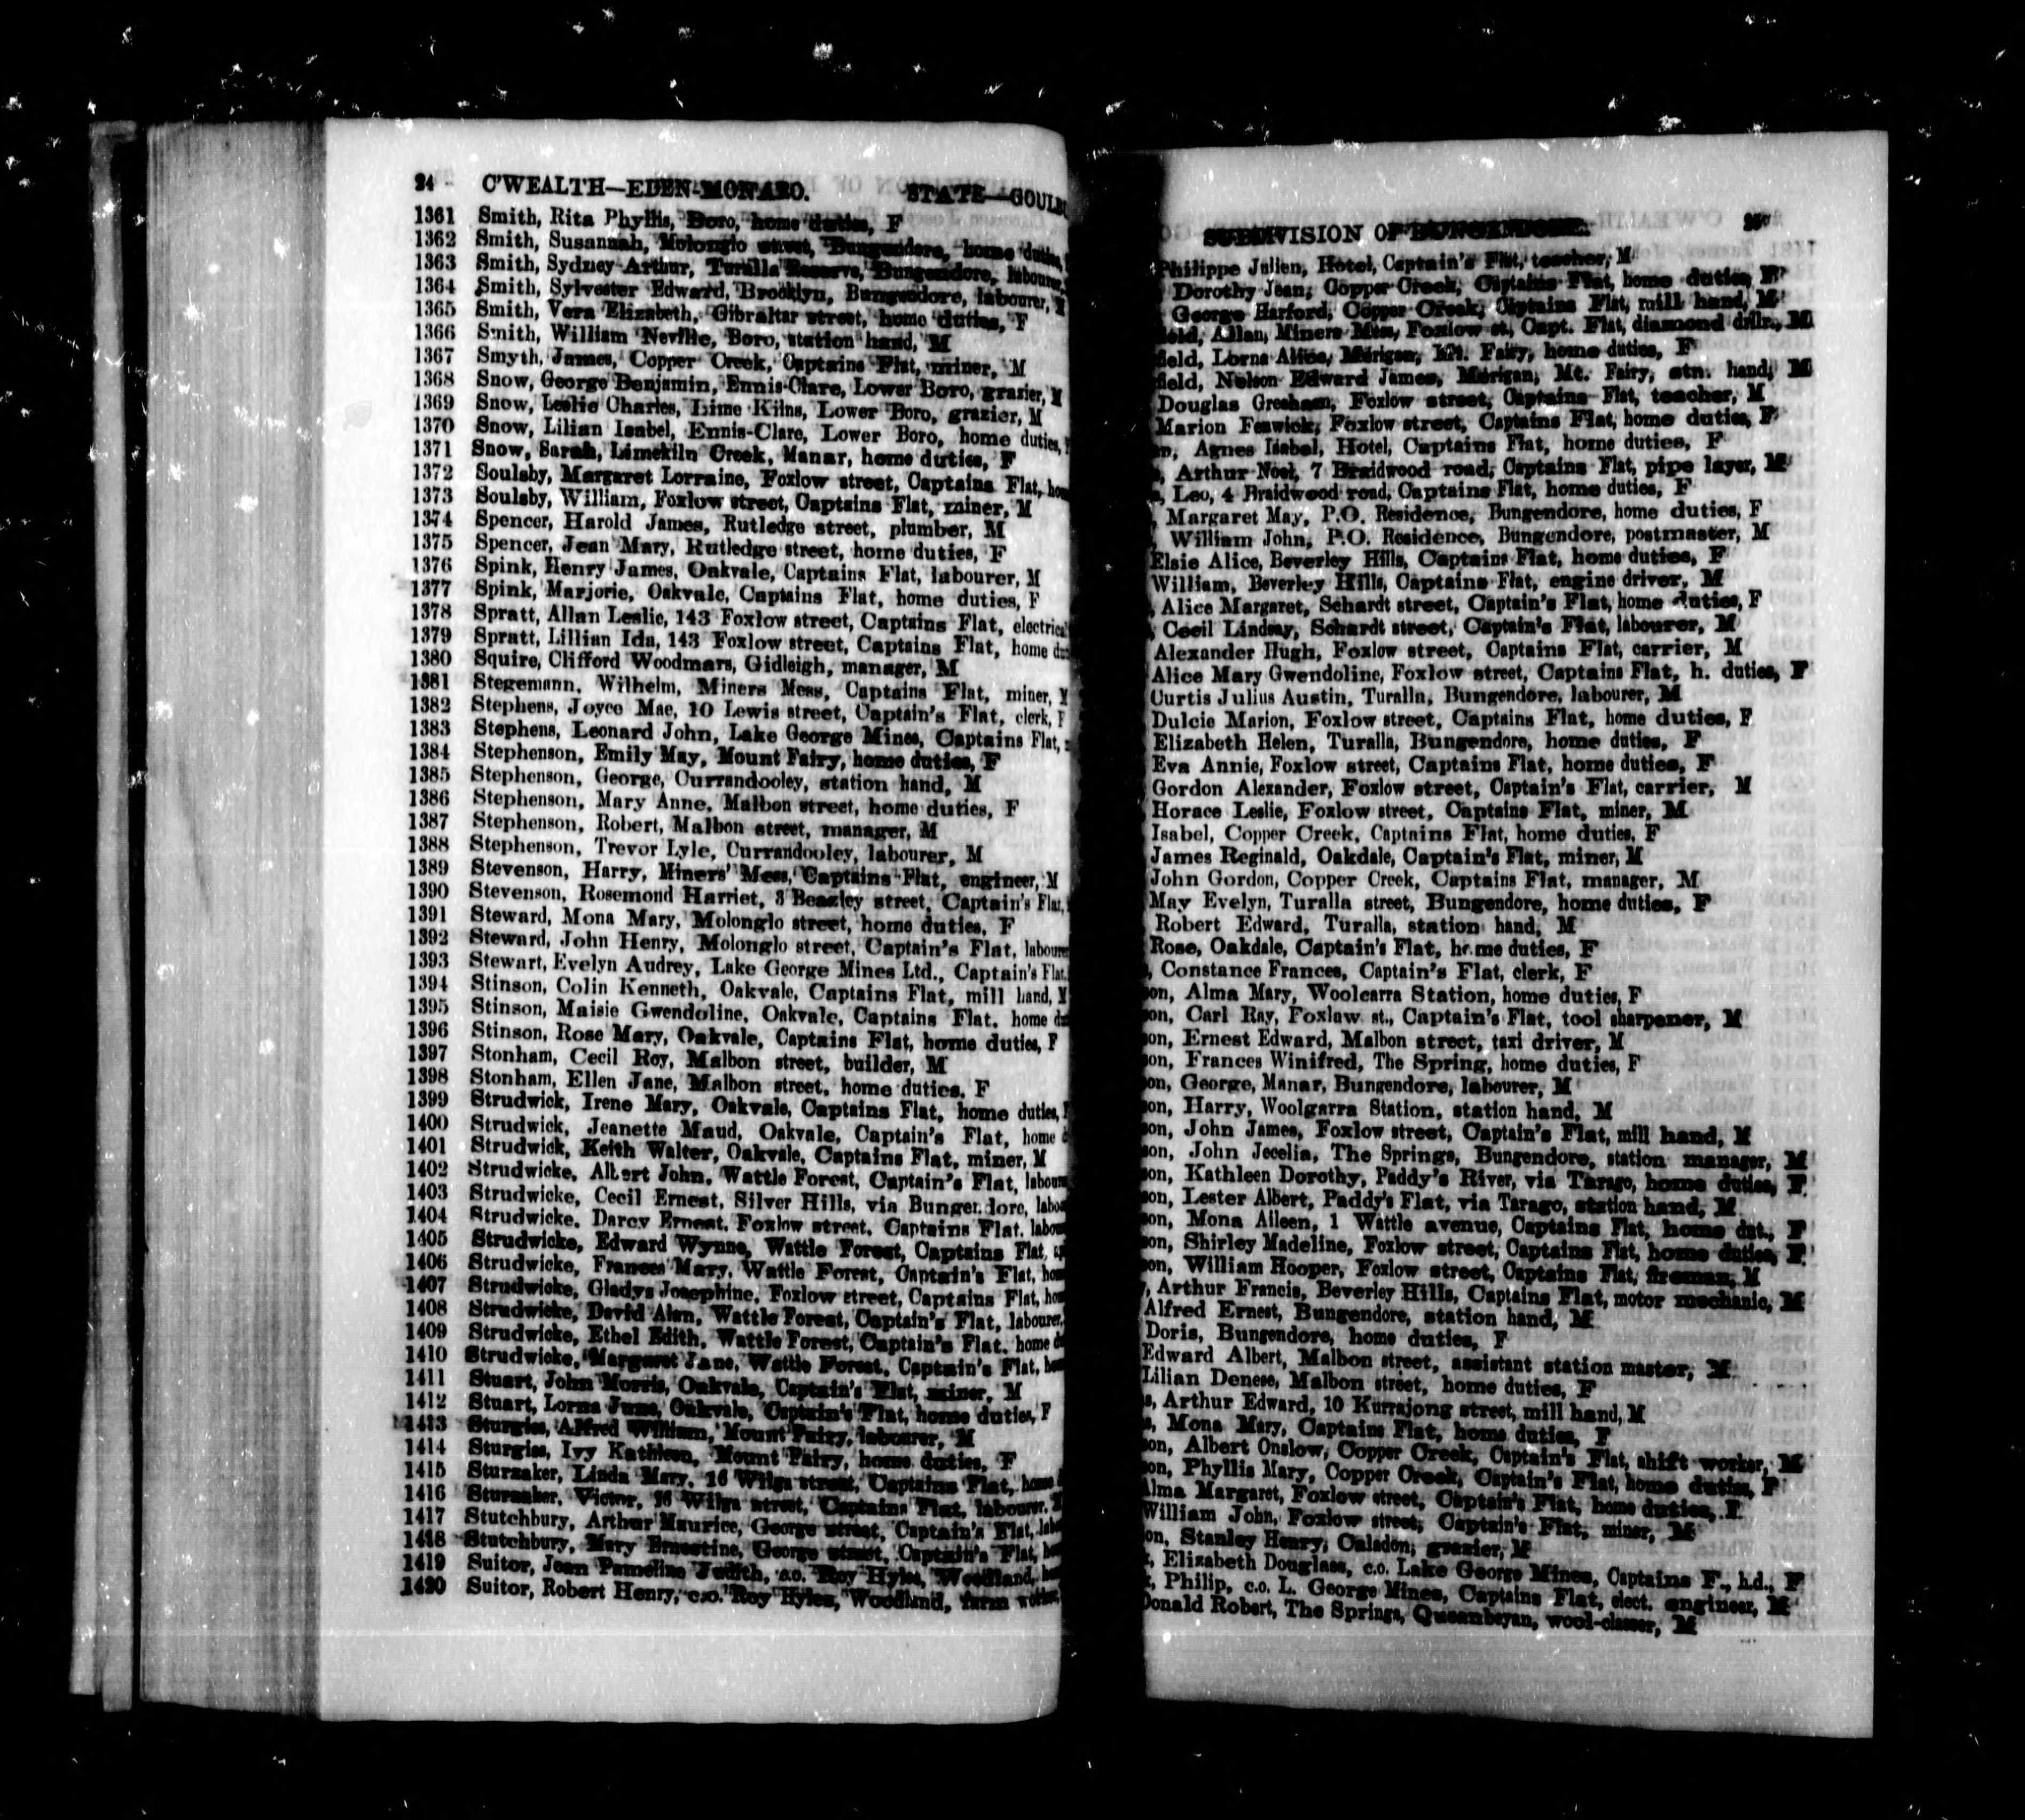 24 C'WEALTH—EDEN-MONARO. STATE—GOULB
1361 Smith, Rita Phyllis, Boro, home duties, F
1362 Smith, Susannah, Molonglo street, Bungendore, home duties,
1363 Smith, Sydney Arthur, Turalla Reserve, Bungendore, labourer,
1364 Smith, Sylvester Edward, Brooklyn, Bungendore, labourer, M
1365 Smith, Vera Elizabeth, Gibraltar street, home duties, F
1366 Smith, William Neville, Boro, station hand, M
1367 Smyth, James, Copper Creek, Captains Flat, miner, M
1368 Snow, George Benjamin, Ennis-Clare, Lower Boro, grazier, M
1369 Snow, Leslie Charles, Lime Kilns, Lower Boro, grazier, M
1370 Snow, Lilian Isabel, Ennis-Clare, Lower Boro, home duties,
1371 Snow, Sarah, Limekiln Creek, Manar, home duties, F
1372 Soulsby, Margaret Lorraine, Foxlow street, Captains Flat, hom
1373 Soulsby, William, Foxlow street, Captains Flat, miner, M
1374 Spencer, Harold James, Rutledge street, plumber, M
1375 Spencer, Jean Mary, Rutledge street, home duties, F
1376 Spink, Henry James, Oakvale, Captains Flat, labourer, M
1377 Spink, Marjorie, Oakvale, Captains Flat, home duties, F
1378 Spratt, Allan Leslie, 143 Foxlow street, Captains Flat, electrical
1379 Spratt, Lillian Ida, 143 Foxlow street, Captains Flat, home du
1380 Squire, Clifford Woodmars, Gidleigh, manager, M
1381 Stegemann, Wilhelm, Miners Mess, Captains Flat, miner, M
1382 Stephens, Joyce Mae, 10 Lewis street, Captain's Flat, clerk, F
1383 Stephens, Leonard John, Lake George Mines, Captains Flat,
1384 Stephenson, Emily May, Mount Fairy, home duties, F
1385 Stephenson, George, Currandooley, station hand, M
1386 Stephenson, Mary Anne, Malbon street, home duties, F
1387 Stephenson, Robert, Malbon street, manager, M
1388 Stephenson, Trevor Lyle, Currandooley, labourer, M
1389 Stevenson, Harry, Miners' Mess, Captains Flat, engineer, M
1390 Stevenson, Rosemond Harriet, 3 Beazley street, Captain's Flat,
1391 Steward, Mona Mary, Molonglo street, home duties, F
1392 Steward, John Henry, Molonglo street, Captain's Flat, labourer
1393 Stewart, Evelyn Audrey, Lake George Mines Ltd., Captain's Flat,
1394 Stinson, Colin Kenneth, Oakvale, Captains Flat, mill hand, M
1395 Stinson, Maisie Gwendoline, Oakvale, Captains Flat, home du
1396 Stinson, Rose Mary, Oakvale, Captains Flat, home duties, F
1397 Stonham, Cecil Roy, Malbon street, builder, M
1398 Stonham, Ellen Jane, Malbon street, home duties, F
1399 Strudwick, Irene Mary, Oakvale, Captains Flat, home duties,
1400 Strudwick, Jeanette Maud, Oakvale, Captain's Flat, home
1401 Strudwick, Keith Walter, Oakvale, Captains Flat, miner, M
1402 Strudwicke, Albert John, Wattle Forest, Captain's Flat, labour
1403 Strudwicke, Cecil Ernest, Silver Hills, via Bungendore, labo
1404 Strudwicke, Darcy Ernest, Foxlow street, Captains Flat, labou
1405 Strudwicke, Edward Wynne, Wattle Forest, Captains Flat,
1406 Strudwicke, Frances Mary, Wattle Forest, Captain's Flat, hom
1407 Strudwicke, Gladys Josephine, Foxlow street, Captains Flat, hom
1408 Strudwicke, David Alan, Wattle Forest, Captain's Flat, labourer,
1409 Strudwicke, Ethel Edith, Wattle Forest, Captain's Flat, home du
1410 Strudwicke, Margaret Jane, Wattle Forest, Captain's Flat, hom
1411 Stuart, John Morris, Oakvale, Captain's Flat, miner, M
1412 Stuart, Lorna June, Oakvale, Captain's Flat, home duties, F
1413 Sturgiss, Alfred William, Mount Fairy, labourer, M
1414 Sturgiss, Ivy Kathleen, Mount Fairy, home duties, F
1415 Sturzaker, Linda Mary, 16 Wilga street, Captains Flat, home
1416 Sturzaker, Victor, 16 Wilga street, Captains Flat, labourer,
1417 Stutchbury, Arthur Maurice, George street, Captain's Flat, labo
1418 Stutchbury, Mary Ernestine, George street, Captain's Flat,
1419 Suitor, Jean Pameline Judith, c.o. Roy Hyles, Woodland,
1420 Suitor, Robert Henry, c.o. Roy Hyles, Woodland, farm worker,
SUBDIVISION OF BUNGENDORE. 25
Philippe Julien, Hotel, Captain's Flat, teacher, M
Dorothy Jean, Copper Creek, Captains Flat, home duties, F
George Harford, Copper Creek, Captains Flat, mill hand, M
ield, Allan, Miners Mess, Foxlow st., Capt. Flat, diamond drllr., M
field, Lorna Alice, Merigan, Mt. Fairy, home duties, F
field, Nelson Edward James, Merigan, Mt. Fairy, stn. hand, M
Douglas Gresham, Foxlow street, Captains Flat, teacher, M
Marion Fenwick, Foxlow street, Captains Flat, home duties, F
n, Agnes Isabel, Hotel, Captains Flat, home duties, F
, Arthur Noel, 7 Braidwood road, Captains Flat, pipe layer, M
, Leo, 4 Braidwood road, Captains Flat, home duties, F
, Margaret May, P.O. Residence, Bungendore, home duties, F
, William John, P.O. Residence, Bungendore, postmaster, M
Elsie Alice, Beverley Hills, Captains Flat, home duties, F
William, Beverley Hills, Captains Flat, engine driver, M
, Alice Margaret, Schardt street, Captain's Flat, home duties, F
, Cecil Lindsay, Schardt street, Captain's Flat, labourer, M
Alexander Hugh, Foxlow street, Captains Flat, carrier, M
Alice Mary Gwendoline, Foxlow street, Captains Flat, h. duties, F
Curtis Julius Austin, Turalla, Bungendore, labourer, M
Dulcie Marion, Foxlow street, Captains Flat, home duties, F
Elizabeth Helen, Turalla, Bungendore, home duties, F
Eva Annie, Foxlow street, Captains Flat, home duties, F
Gordon Alexander, Foxlow street, Captain's Flat, carrier, M
Horace Leslie, Foxlow street, Captains Flat, miner, M
Isabel, Copper Creek, Captains Flat, home duties, F
James Reginald, Oakdale, Captain's Flat, miner, M
John Gordon, Copper Creek, Captains Flat, manager, M
May Evelyn, Turalla street, Bungendore, home duties, F
Robert Edward, Turalla, station hand, M
Rose, Oakdale, Captain's Flat, home duties, F
, Constance Frances, Captain's Flat, clerk, F
on, Alma Mary, Woolcarra Station, home duties, F
on, Carl Ray, Foxlaw st., Captain's Flat, tool sharpener, M
on, Ernest Edward, Malbon street, taxi driver, M
on, Frances Winifred, The Spring, home duties, F
on, George, Manar, Bungendore, labourer, M
on, Harry, Woolgarra Station, station hand, M
on, John James, Foxlow street, Captain's Flat, mill hand, M
on, John Jecelia, The Springs, Bungendore, station manager, M
on, Kathleen Dorothy, Paddy's River, via Tarago, home duties, F
on, Lester Albert, Paddy's Flat, via Tarago, station hand, M
on, Mona Aileen, 1 Wattle avenue, Captains Flat, home dut., F
on, Shirley Madeline, Foxlow street, Captains Flat, home duties, F
on, William Hooper, Foxlow street, Captains Flat, fireman, M
, Arthur Francis, Beverley Hills, Captains Flat, motor mechanic, M
Alfred Ernest, Bungendore, station hand, M
Doris, Bungendore, home duties, F
Edward Albert, Malbon street, assistant station master, M
Lilian Denese, Malbon street, home duties, F
s, Arthur Edward, 10 Kurrajong street, mill hand, M
s, Mona Mary, Captains Flat, home duties, F
on, Albert Onslow, Copper Creek, Captain's Flat, shift worker, M
on, Phyllis Mary, Copper Creek, Captain's Flat, home duties, F
Alma Margaret, Foxlow street, Captain's Flat, home duties, F
William John, Foxlow street, Captain's Flat, miner, M
on, Stanley Henry, Caladon, grazier, M
, Elizabeth Douglass, c.o. Lake George Mines, Captains F., h.d., F
, Philip, c.o. L. George Mines, Captains Flat, elect. engineer, M
Donald Robert, The Springs, Queanbeyan, wool-classer, M